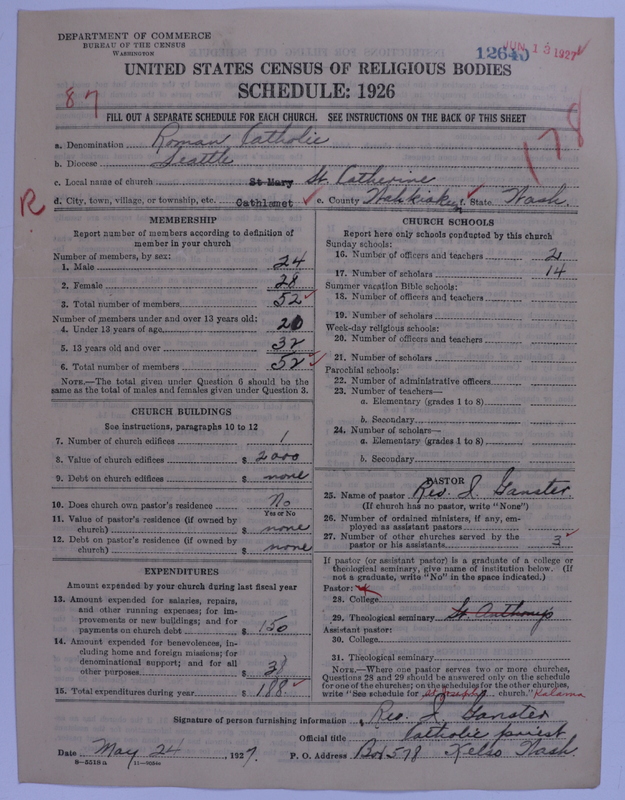 DEPARTMENT OF COMMERCE
BUREAU OF THE CENSUS
WASHINGTON
12640 JUN 13 1927
UNITED STATES CENSUS OF RELIGIOUS BODIES
SCHEDULE: 1926
87
178
FILL OUT A SEPARATE SCHEDULE FOR EACH CHURCH. SEE INSTRUCTIONS ON THE BACK OF THIS SHEET
a. Denomination Roman Catholic
b. Diocese Seattle
c. Local name of church St Mary St. Catherine
R
d. City, town, village, or township, etc. Cathlamet e. County Wahkiakum f. State Wash.
MEMBERSHIP
Report number of members according to definition of
member in your church
Number of members, by sex:
1. Male 24
2. Female 28
3. Total number of members 52
Number of members under and over 13 years old:
4. Under 13 years of age 20
5. 13 years old and over 32
6. Total number of members 52
NOTE.—The total given under Question 6 should be the
same as the total of males and females given under Question 3.
CHURCH BUILDINGS
See instructions, paragraphs 10 to 12
7. Number of church edifices 1
8. Value of church edifices $ 2000
9. Debt on church edifices $ none
10. Does church own pastor's residence No
Yes or No
11. Value of pastor's residence (if owned by
church) $ none
12. Debt on pastor's residence (if owned by
church) $ none
EXPENDITURES
Amount expended by your church during last fiscal year
13. Amount expended for salaries, repairs,
and other running expenses; for im-
provements or new buildings; and for
payments on church debt $ 150
14. Amount expended for benevolences, in-
cluding home and foreign missions; for
denominational support; and for all
other purposes $ 38
15. Total expenditures during year $ 188
CHURCH SCHOOLS
Report here only schools conducted by this church
Sunday schools:
16. Number of officers and teachers 2
17. Number of scholars 14
Summer vacation Bible schools:
18. Number of officers and teachers
19. Number of scholars
Week-day religious schools:
20. Number of officers and teachers
21. Number of scholars
Parochial schools:
22. Number of administrative officers
23. Number of teachers—
a. Elementary (grades 1 to 8)
b. Secondary
24. Number of scholars—
a. Elementary (grades 1 to 8)
b. Secondary
PASTOR
25. Name of pastor Rev. J. Ganster.
(If church has no pastor, write "None")
26. Number of ordained ministers, if any, em-
ployed as assistant pastors
27. Number of other churches served by the
pastor or his assistants 3
If pastor (or assistant pastor) is a graduate of a college or
theological seminary, give name of institution below. (If
not a graduate, write "No" in the space indicated.)
Pastor:
28. College
29. Theological seminary St Anthonys
Assistant pastor:
30. College
31. Theological seminary
NOTE.—Where one pastor serves two or more churches,
Questions 28 and 29 should be answered only on the schedule
for one of the churches; on the schedules for the other churches,
write "See schedule for St Joseph church." Kalama
Signature of person furnishing information Rev. J Ganster
Official title Catholic priest
Date May 24, 1927. P. O. Address Box 578 Kelso Wash.
8-5518a